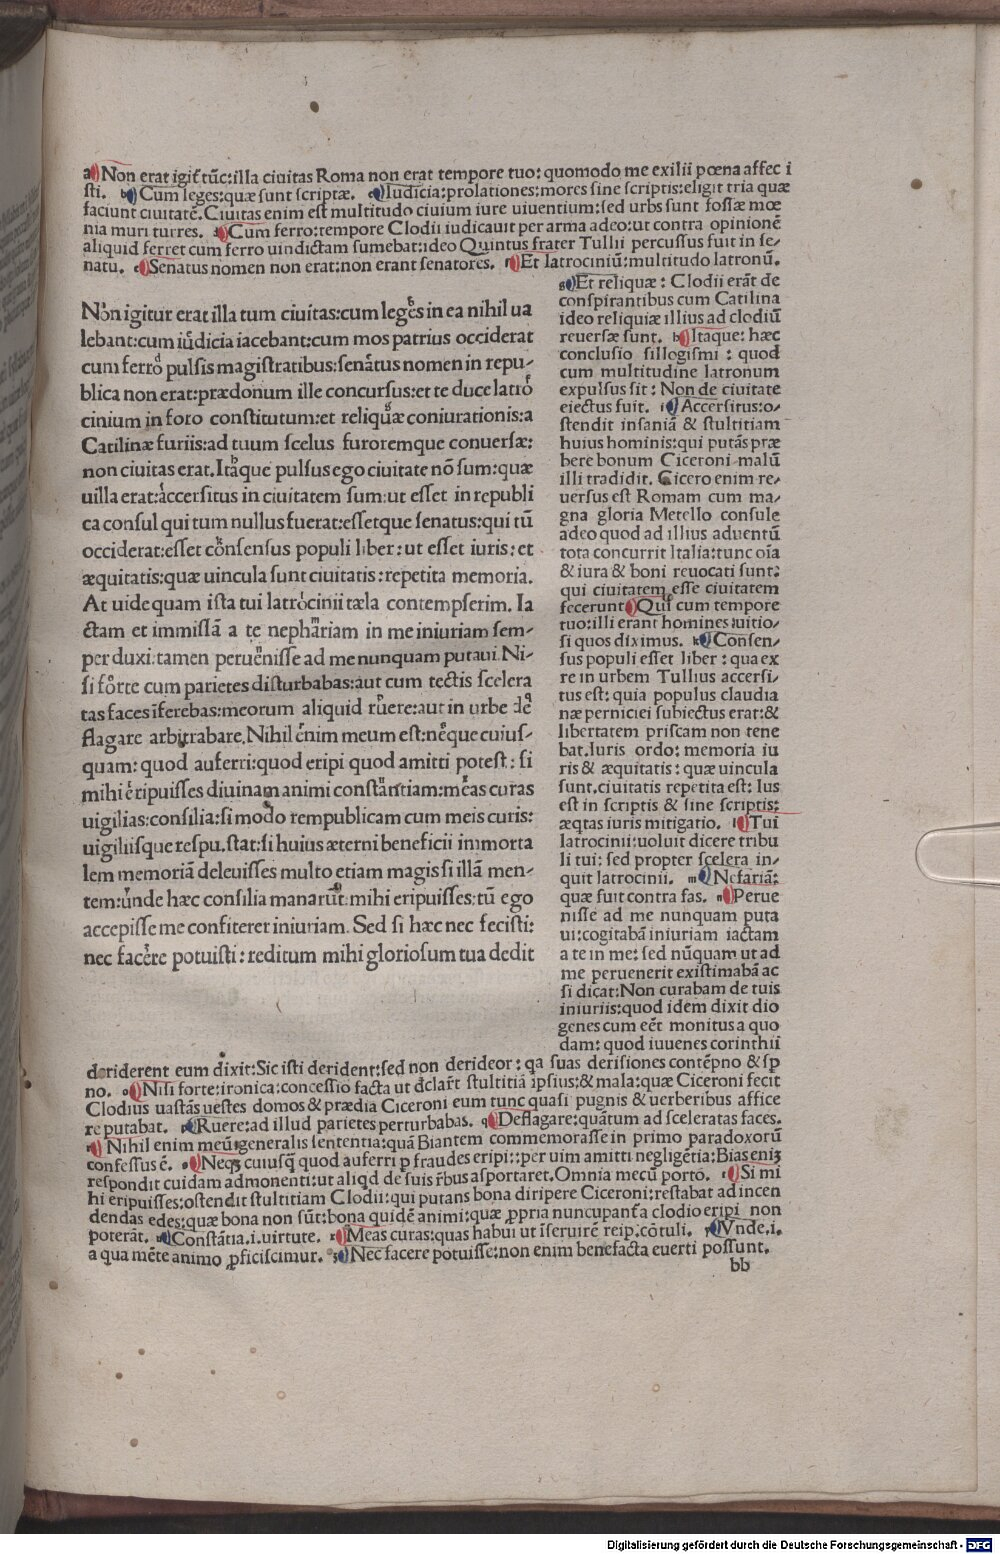 a Non erat igit̃ tũc: illa ciuitas Roma non erat tempore tuo: quomodo me exilii pœna affec i
sti. b Cum leges: quæ sunt scriptæ. c Iudicia: prolationes: mores sine scriptis: eligit tria quæ
faciunt ciuitatẽ. Ciuitas enim est multitudo ciuium iure uiuentium: sed urbs sunt fossæ mœ
nia muri turres. d Cum ferro: tempore Clodii iudicauit per arma adeo: ut contra opinionẽ
aliquid ferret cum ferro uindictam sumebat: ideo Quintus frater Tullii percussus fuit in se/
natu. e Senatus nomen non erat: non erant senatores. f Et latrociniũ: multitudo latronũ.
Non igitur erat illa tum ciuitas: cum leges in ea nihil ua
lebant: cum iudicia iacebant: cum mos patrius occiderat
cum ferro pulsis magistratibus: senatus nomen in repu/
blica non erat: prædonum ille concursus: et te duce latro
cinium in foro constitutum: et reliquæ coniurationis: a
Catilinæ furiis: ad tuum scelus furoremque conuersæ:
non ciuitas erat. Itaque pulsus ego ciuitate nõ sum: quæ
uilla erat: accersitus in ciuitatem sum: ut esset in republi
ca consul qui tum nullus fuerat: essetque senatus: qui tũ
occiderat: esset consensus populi liber: ut esset iuris: et
æquitatis: quæ uincula sunt ciuitatis: repetita memoria.
At uide quam ista tui latrocinii tæla contempserim. Ia
ctam et immissã a te nephariam in me iniuriam sem/
per duxi: tamen peruenisse ad me nunquam putaui. Ni/
si forte cum parietes disturbabas: aut cum tectis scelera
tas faces ĩferebas: meorum aliquid ruere: aut in urbe de
flagare arbitrabare. Nihil enim meum est: neque cuius/
quam: quod auferri: quod eripi quod amitti potest: si
mihi eripuisses diuinam animi constantiam: meas curas
uigilias: consilia: si modo rempublicam cum meis curis:
uigiliisque respu. stat: si huius æterni beneficii immorta
lem memoriã deleuisses multo etiam magis si illã men/
tem: unde hæc consilia manarũt: mihi eripuisses: tũ ego
accepisse me confiterer iniuriam. Sed si hæc nec fecisti:
nec facere potuisti: reditum mihi gloriosum tua dedit
g Et reliquæ: Clodii erãt de
conspirantibus cum Catilina
ideo reliquiæ illius ad clodiũ
reuersæ sunt. h Itaque: hæc
conclusio sillogismi: quod
cum multitudine latronum
expulsus sit: Non de ciuitate
eiectus fuit. i Accersitus: o/
stendit insaniã & stultitiam
huius hominis: qui putãs præ
bere bonum Ciceroni malũ
illi tradidit. Cicero enim re/
uersus est Romam cum ma/
gna gloria Metello consule
adeo quod ad illius aduentũ
tota concurrit Italia: tunc oĩa
& iura & boni reuocati sunt:
qui ciuitatem esse ciuitatem
fecerunt Qui cum tempore
tuo: illi erant homines uitio/
si quos diximus. k Consen/
sus populi esset liber: qua ex
re in urbem Tullius accersi/
tus est: quia populus claudia
næ perniciei subiectus erat: &
libertatem priscam non tene
bat. Iuris ordo: memoria iu
ris & æquitatis: quæ uincula
sunt. ciuitatis repetita est: Ius
est in scriptis & sine scriptis:
æqtas iuris mitigatio. l Tui
latrocinii: uoluit dicere tribu
li tui: sed propter scelera in/
quit latrocinii. m Nefariã:
quæ fuit contra fas. n Perue
nisse ad me nunquam puta
ui: cogitabã iniuriam iactam
a te in me: sed nũquam ut ad
me peruenerit existimabã ac
si dicat: Non curabam de tuis
iniuriis: quod idem dixit dio
genes cum eẽt monitus a quo
dam: quod iuuenes corinthii
deriderent eum dixit: Sic isti derident: sed non derideor: qa suas derisiones contẽpno & sp
no. o Nisi forte: ironica: concessio facta ut dclart̃ stultitiã ipsius: & mala: quæ Ciceroni fecit
Clodius uastãs uestes domos & prædia Ciceroni eum tunc quasi pugnis & uerberibus affice
re putabat. p Ruere: ad illud parietes perturbabas. q Deflagare: quãtum ad sceleratas faces.
r Nihil enim meũ: generalis sententia: quã Biantem commemorasse in primo paradoxorũ
confessus ẽ. s Neqȝ cuiusq̃ quod auferri p fraudes eripi: per uim amitti negligẽtia: Bias enĩȝ
respondit cuidam admonenti: ut aliqd de suis rẽbus asportaret. Omnia mecũ porto. t Si mi
hi eripuisses: ostendit stultitiam Clodii: qui putans bona diripere Ciceroni: restabat ad incen
dendas edes: quæ bona non sũt: bona quidẽ animi: quæ ꝓpria nuncupant̃ a clodio eripi non
poterãt. u Constãtia. i. uirtute. x Meas curas: quas habui ut ĩseruirẽ reip. cõtuli. y Vnde. i.
a qua mẽte animo ꝓficiscimur. z Nec facere potuisse: non enim benefacta euerti possunt.
bb
Digitalisierung gefördert durch die Deutsche Forschungsgemeinschaft - DFG